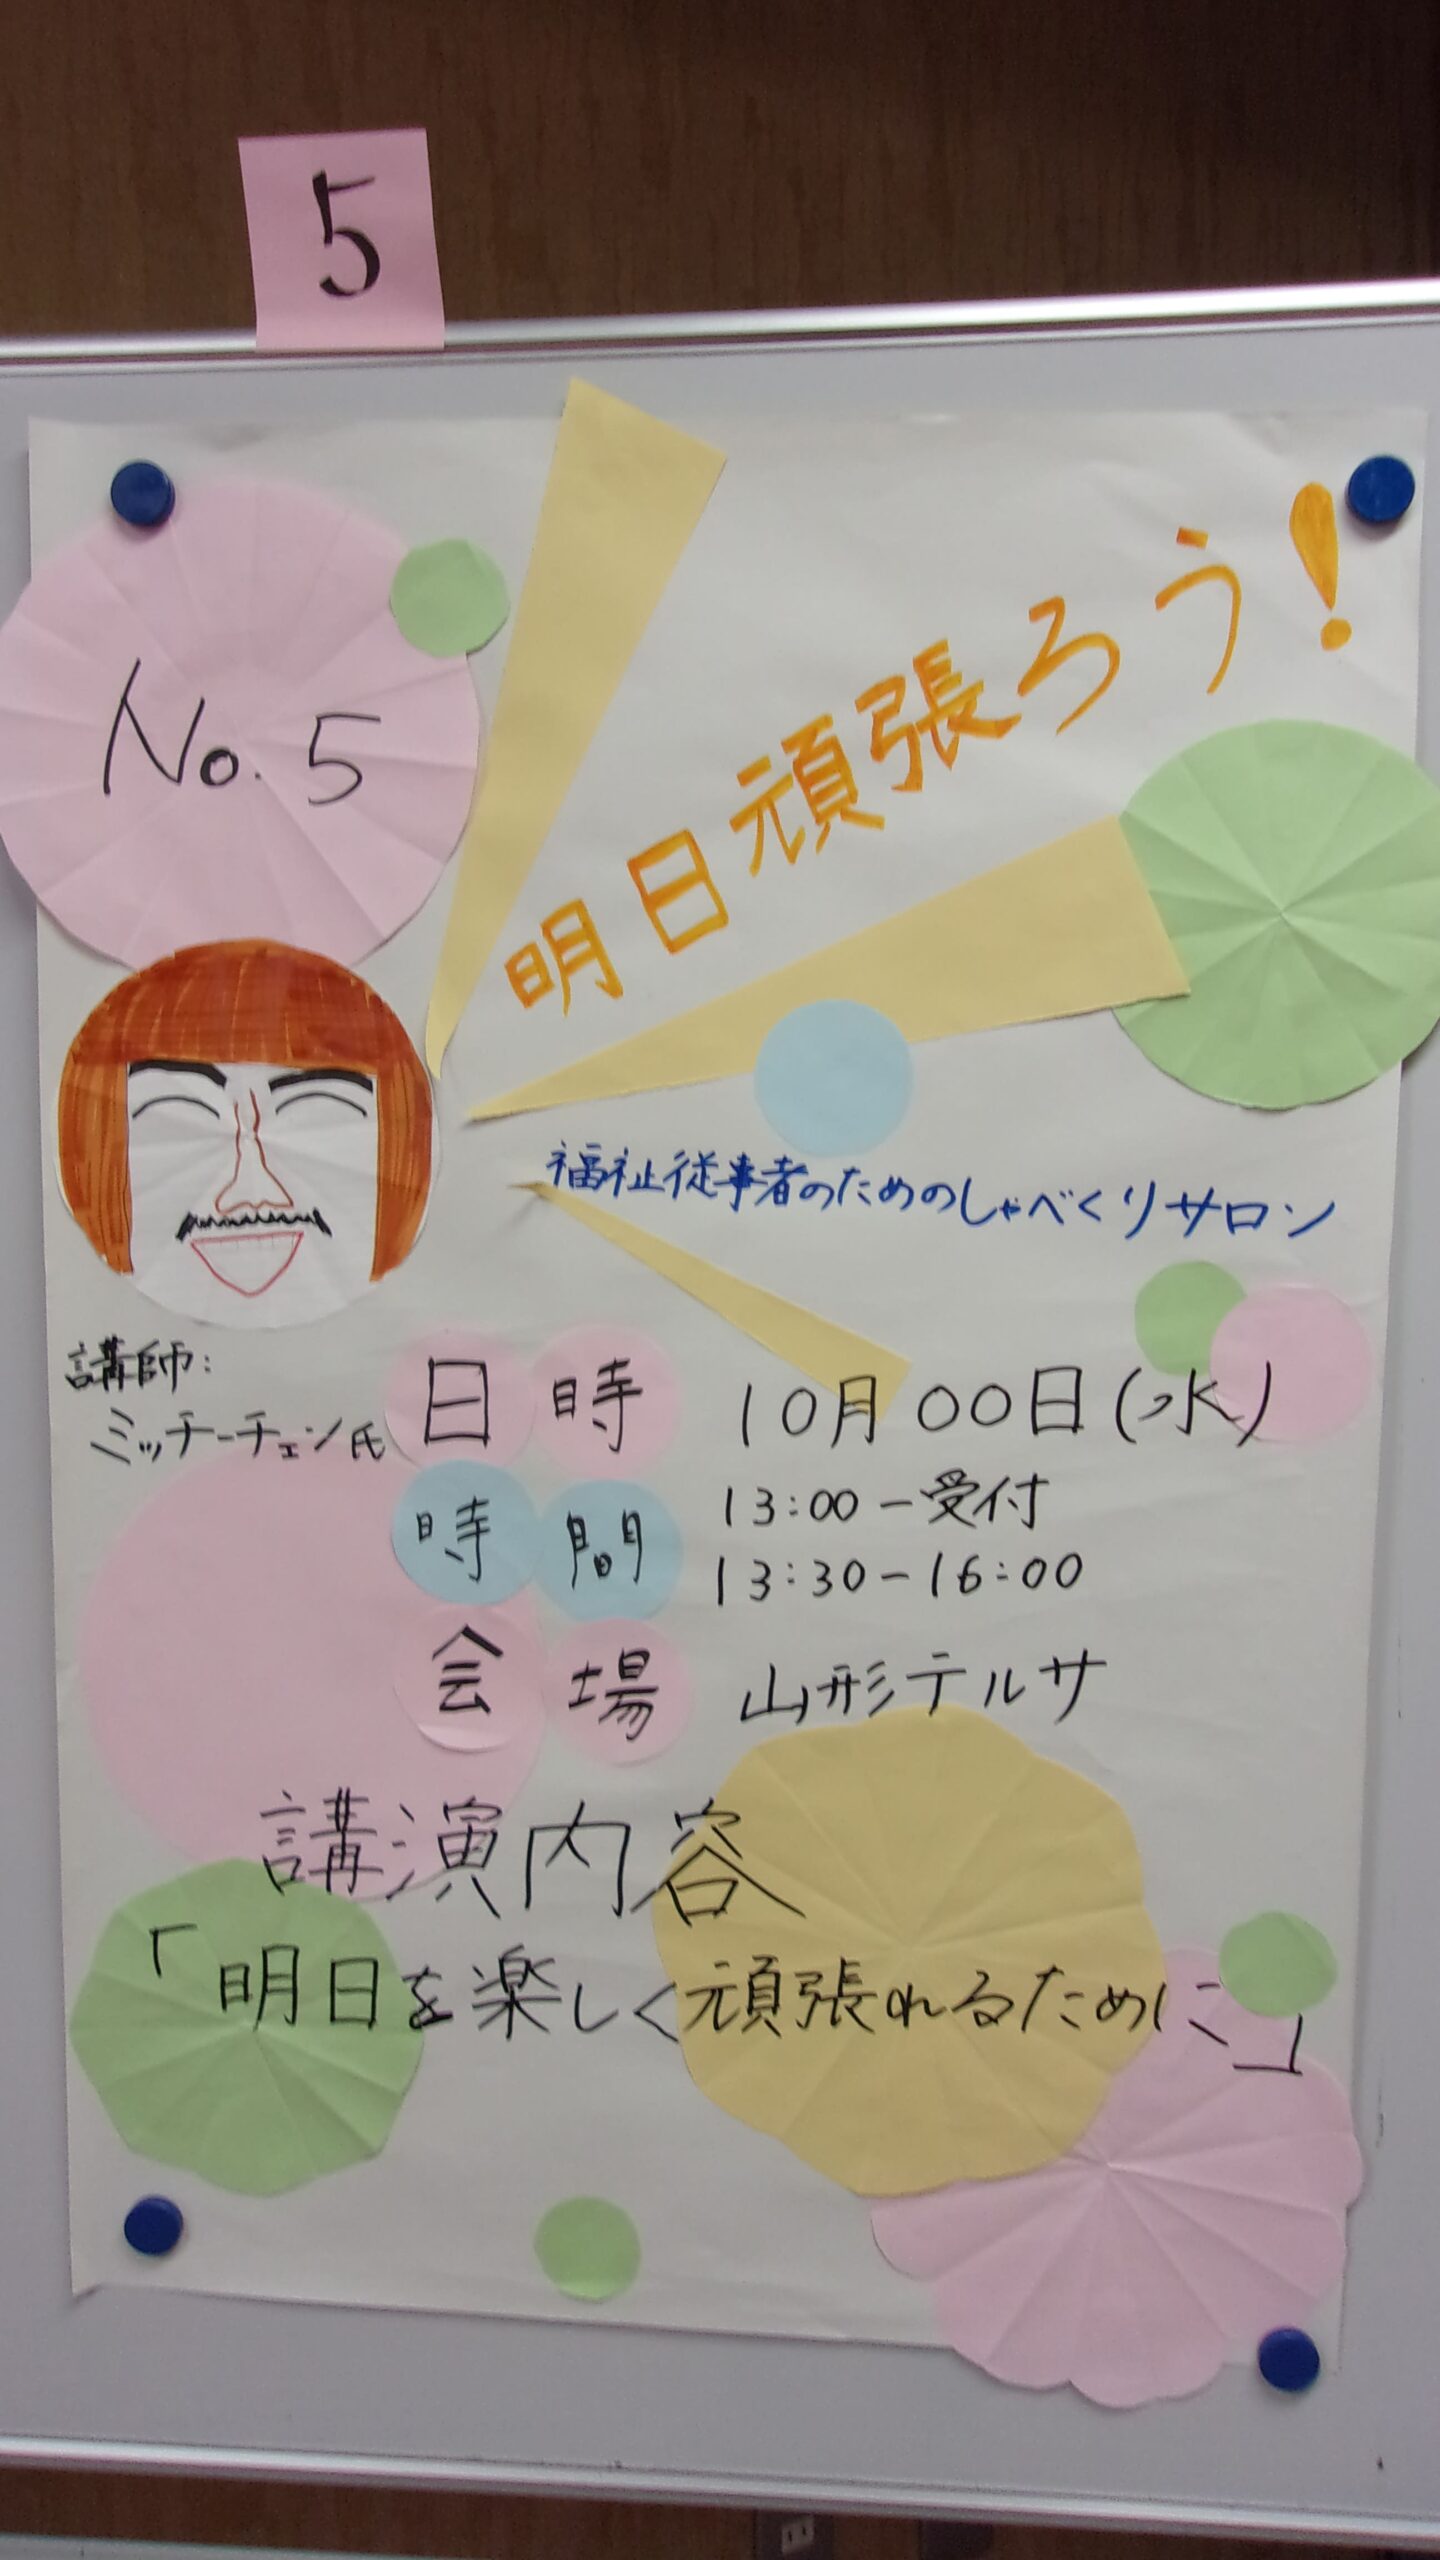 5
No. 5
明日頑張ろう!
福祉従事者のためのしゃべくりサロン
講師:
ミッチーチェン氏
日時 10月00日(水)
時間 13:00-受付
13:30-16:00
会場 山形テルサ
講演内容
「明日を楽しく頑張れるために」